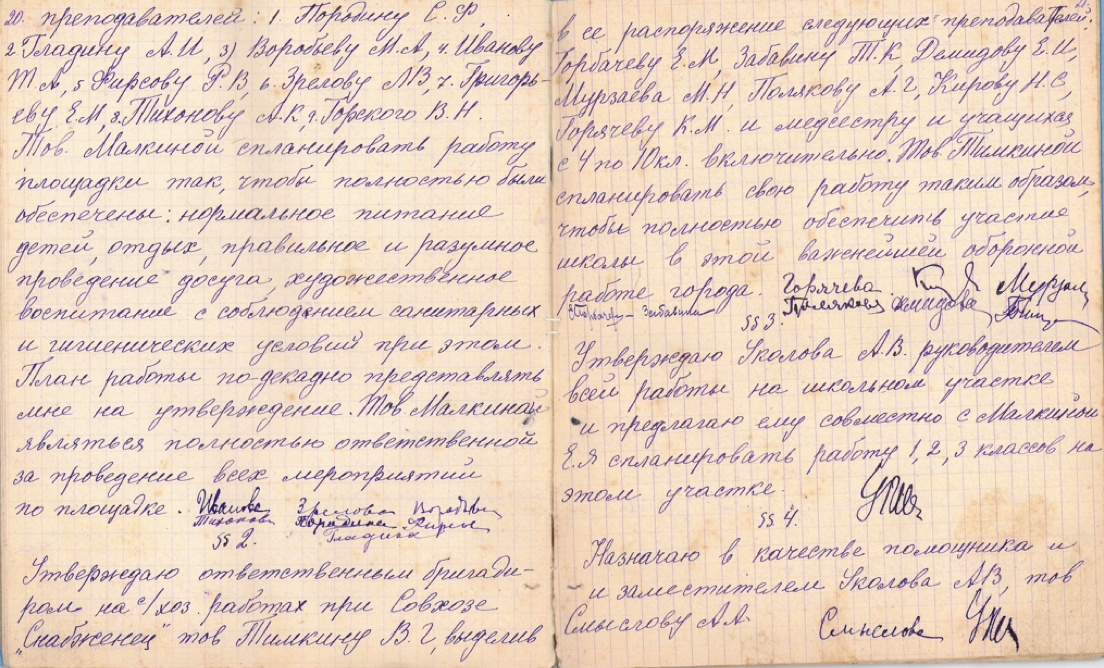 20. преподавателей: 1. Породину С. Ф.,
2 Гладину А.И, 3) Воробьеву М.А, 4. Иванову
Т.А, 5 Фирсову Р.В, 6. Зрелову Л В, 7. Григорь-
еву Е.М, 8. Тихонову А.К, 9. Горского В. Н.
Тов. Малкиной спланировать работу
площадки так, чтобы полностью были
обеспечены: нормальное питание
детей, отдых, правильное и разумное
проведение досуга, художественное
воспитание с соблюдением санитарных
и гигиенических условий при этом.
План работы по-декадно представлять
мне на утверждение. Тов Малкиной
являться полностью ответственной
за проведение всех мероприятий
по площадке. Иванова Зрелова Воробьева
Тихонова Породина Фирсо
Гладина
§§ 2.
Утверждаю ответственным бригади-
ром на с/хоз. работах при Совхозе
„Снабженец" тов Тимкину В. Г, выделив
в ее распоряжение следующих преподавателей:
Горбачеву Е.М, Забавину Т.К, Демидову Е.И,
Мурзаева М.Н, Полякову А.Г, Кирову Н.С,
Горячеву К.М. и медсестру и учащихся
с 4 по 10 кл. включительно. Тов Тимкиной
спланировать свою работу таким образом,
чтобы полностью обеспечить участие
школы в этой важнейшей оборонной
работе города. Горячева. Мурзаев
Забавина Полякова Демидова
§§ 3.
Утверждаю Уколова А.В. руководителем
всей работы на школьном участке
и предлагаю ему совместно с Малкиной
Е.Я спланировать работу 1, 2, 3 классов на
этом участке.
§§ 4.
Назначаю в качестве помощника и
и заместителем Уколова АВ, тов
Смыслову А.А. Смыслова